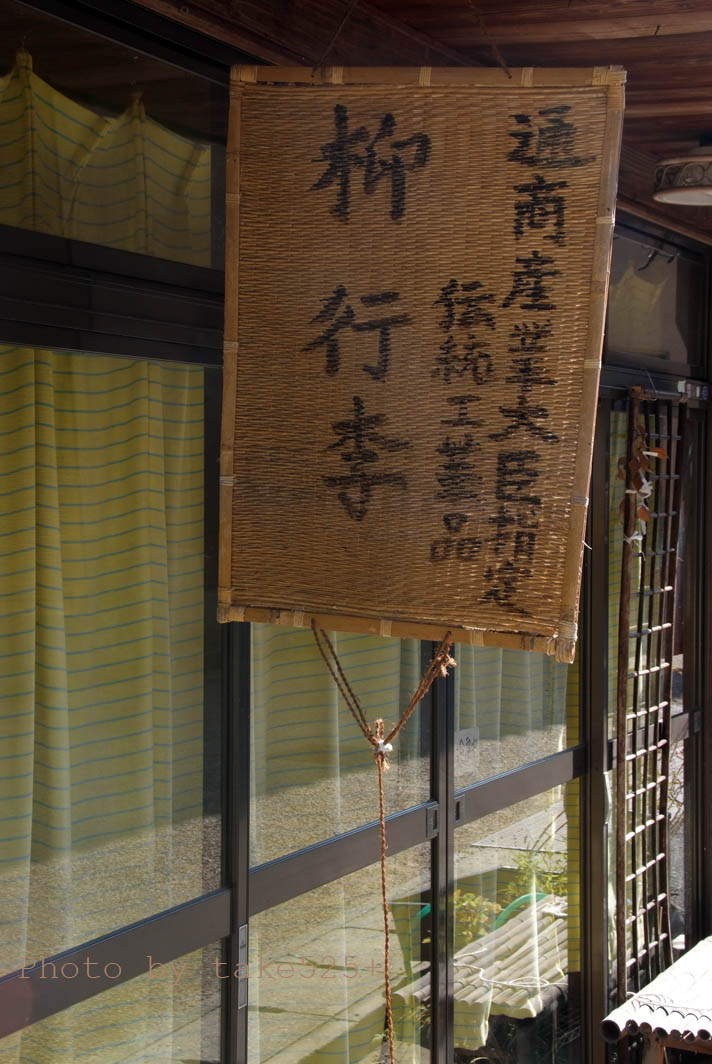 通商産業大臣指定
伝統工芸品
柳行李
Photo by take325+